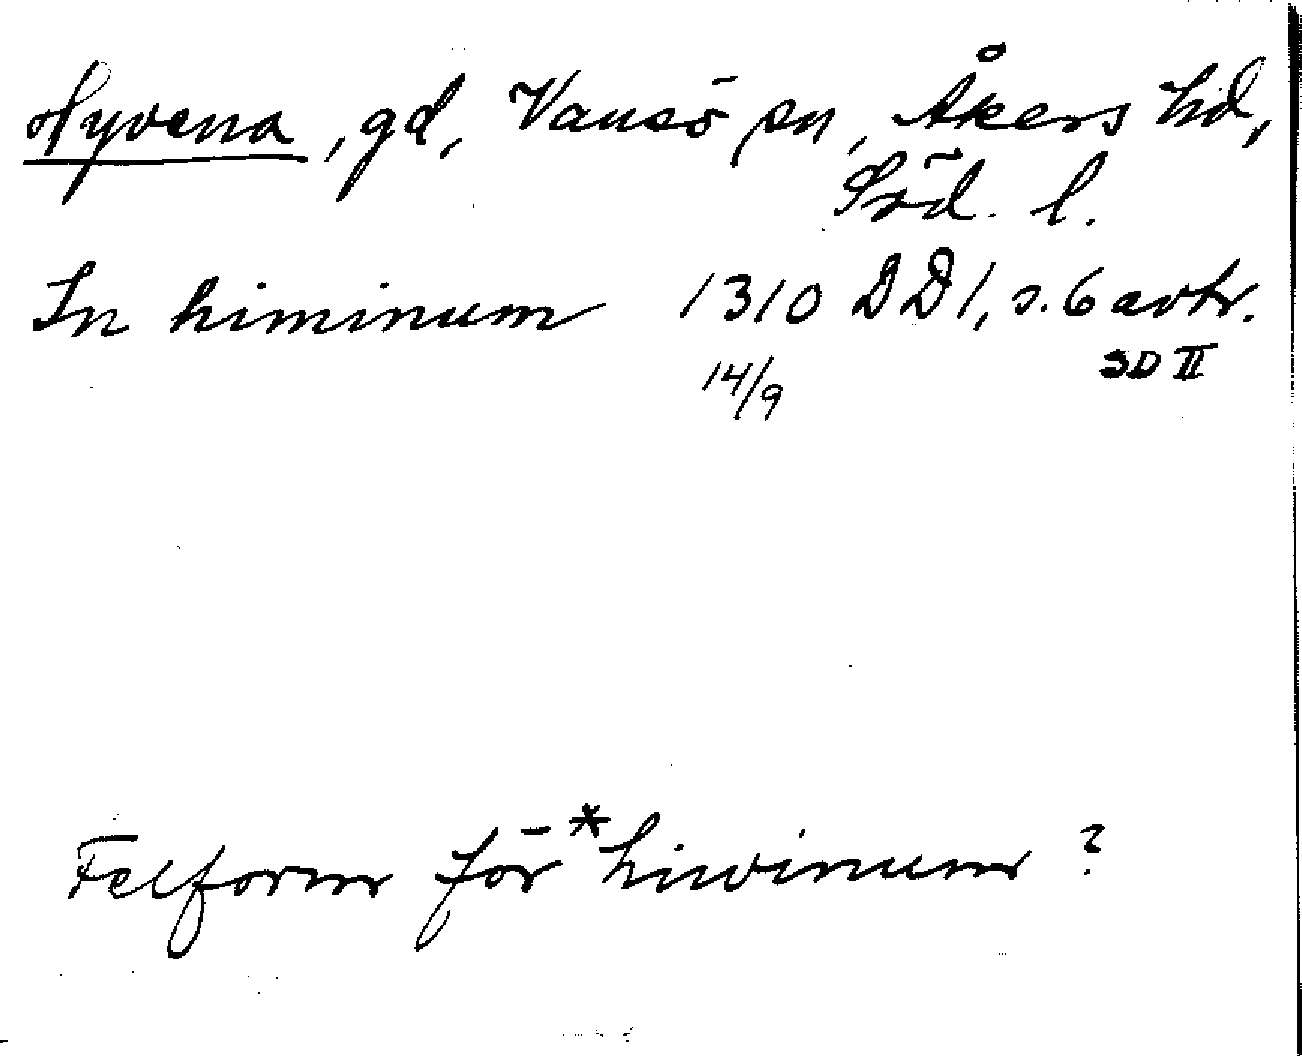 Hyvena, gd, Vansö sn, Åkers hd,
Söd. l.
In himinum 1310 DD1, s. 6 avtr.
14/9 SD II
Felform för *hiwinum?